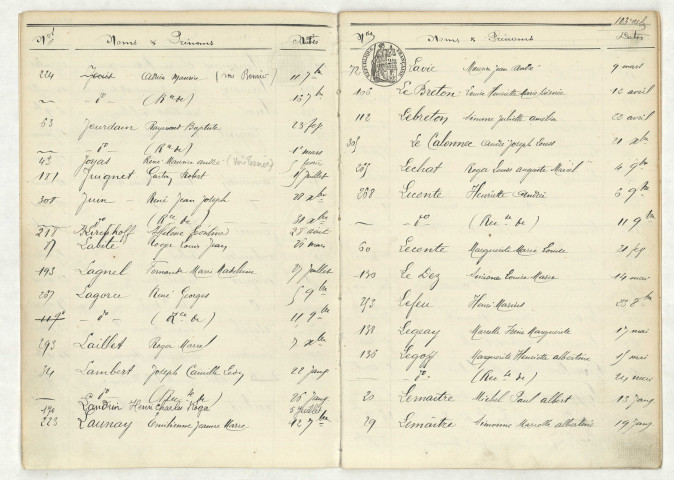 Nos Noms & Prénoms Dates
224 Jouis Adrien Maurice (voir Bernier) 11 7bre
— do — (Rce de) 16 7bre
63 Jourdain Raymond Baptiste 23 fev
— do — (Rce de) 1er mars
43 Joyas René Maurice André (voir Bernier) 5 février
181 Juignet Gaston Robert 5 juillet
308 Juin René Jean Joseph 28 xbre
do (Rce de) 30 xbre
218 Kirchhoff Hélène 28 août
87 Labite Roger Louis Jean 26 mars
193 Lagniel Fernande Marie Madeleine 27 juillet
267 Lagorce René Georges 5 9bre
— do — (Rce de) 11 9bre
293 Laillet Roger Marcel 7 xbre
34 Lambert Joseph Camille 22 janv
— do (Rec. de) 26 janv
190 Landrin Henri Charles Roger 5 juillet
223 Launay Emilienne Jeanne Marie 12 7bre
Nos Noms & Prénoms Dates
72 Lavie Maurice Jean André 9 mars
106 Le Breton Louise Henriette 12 avril
112 Lebreton Simone Juliette 22 avril
305 Le Calonnec André Joseph Louis 21 xbre
265 Lechat Roger Louis Auguste Marcel 4 9bre
268 Leconte Henriette Andrée 6 9bre
— do (Rec. de) 11 9bre
60 Leconte Marguerite Marie Louise 21 fev
130 Le Dez Simone Louise Marie 14 mai
253 Lefeu Henri Marius 23 8bre
138 Legeay Marcelle Irène Marguerite 17 mai
136 Legoff Marguerite Henriette Albertine 15 mai
— do — (Rec. de) 24 mai
20 Lemaitre Michel Paul Albert 13 janv
29 Lemaitre Simonne Marcelle Albertine 19 janv